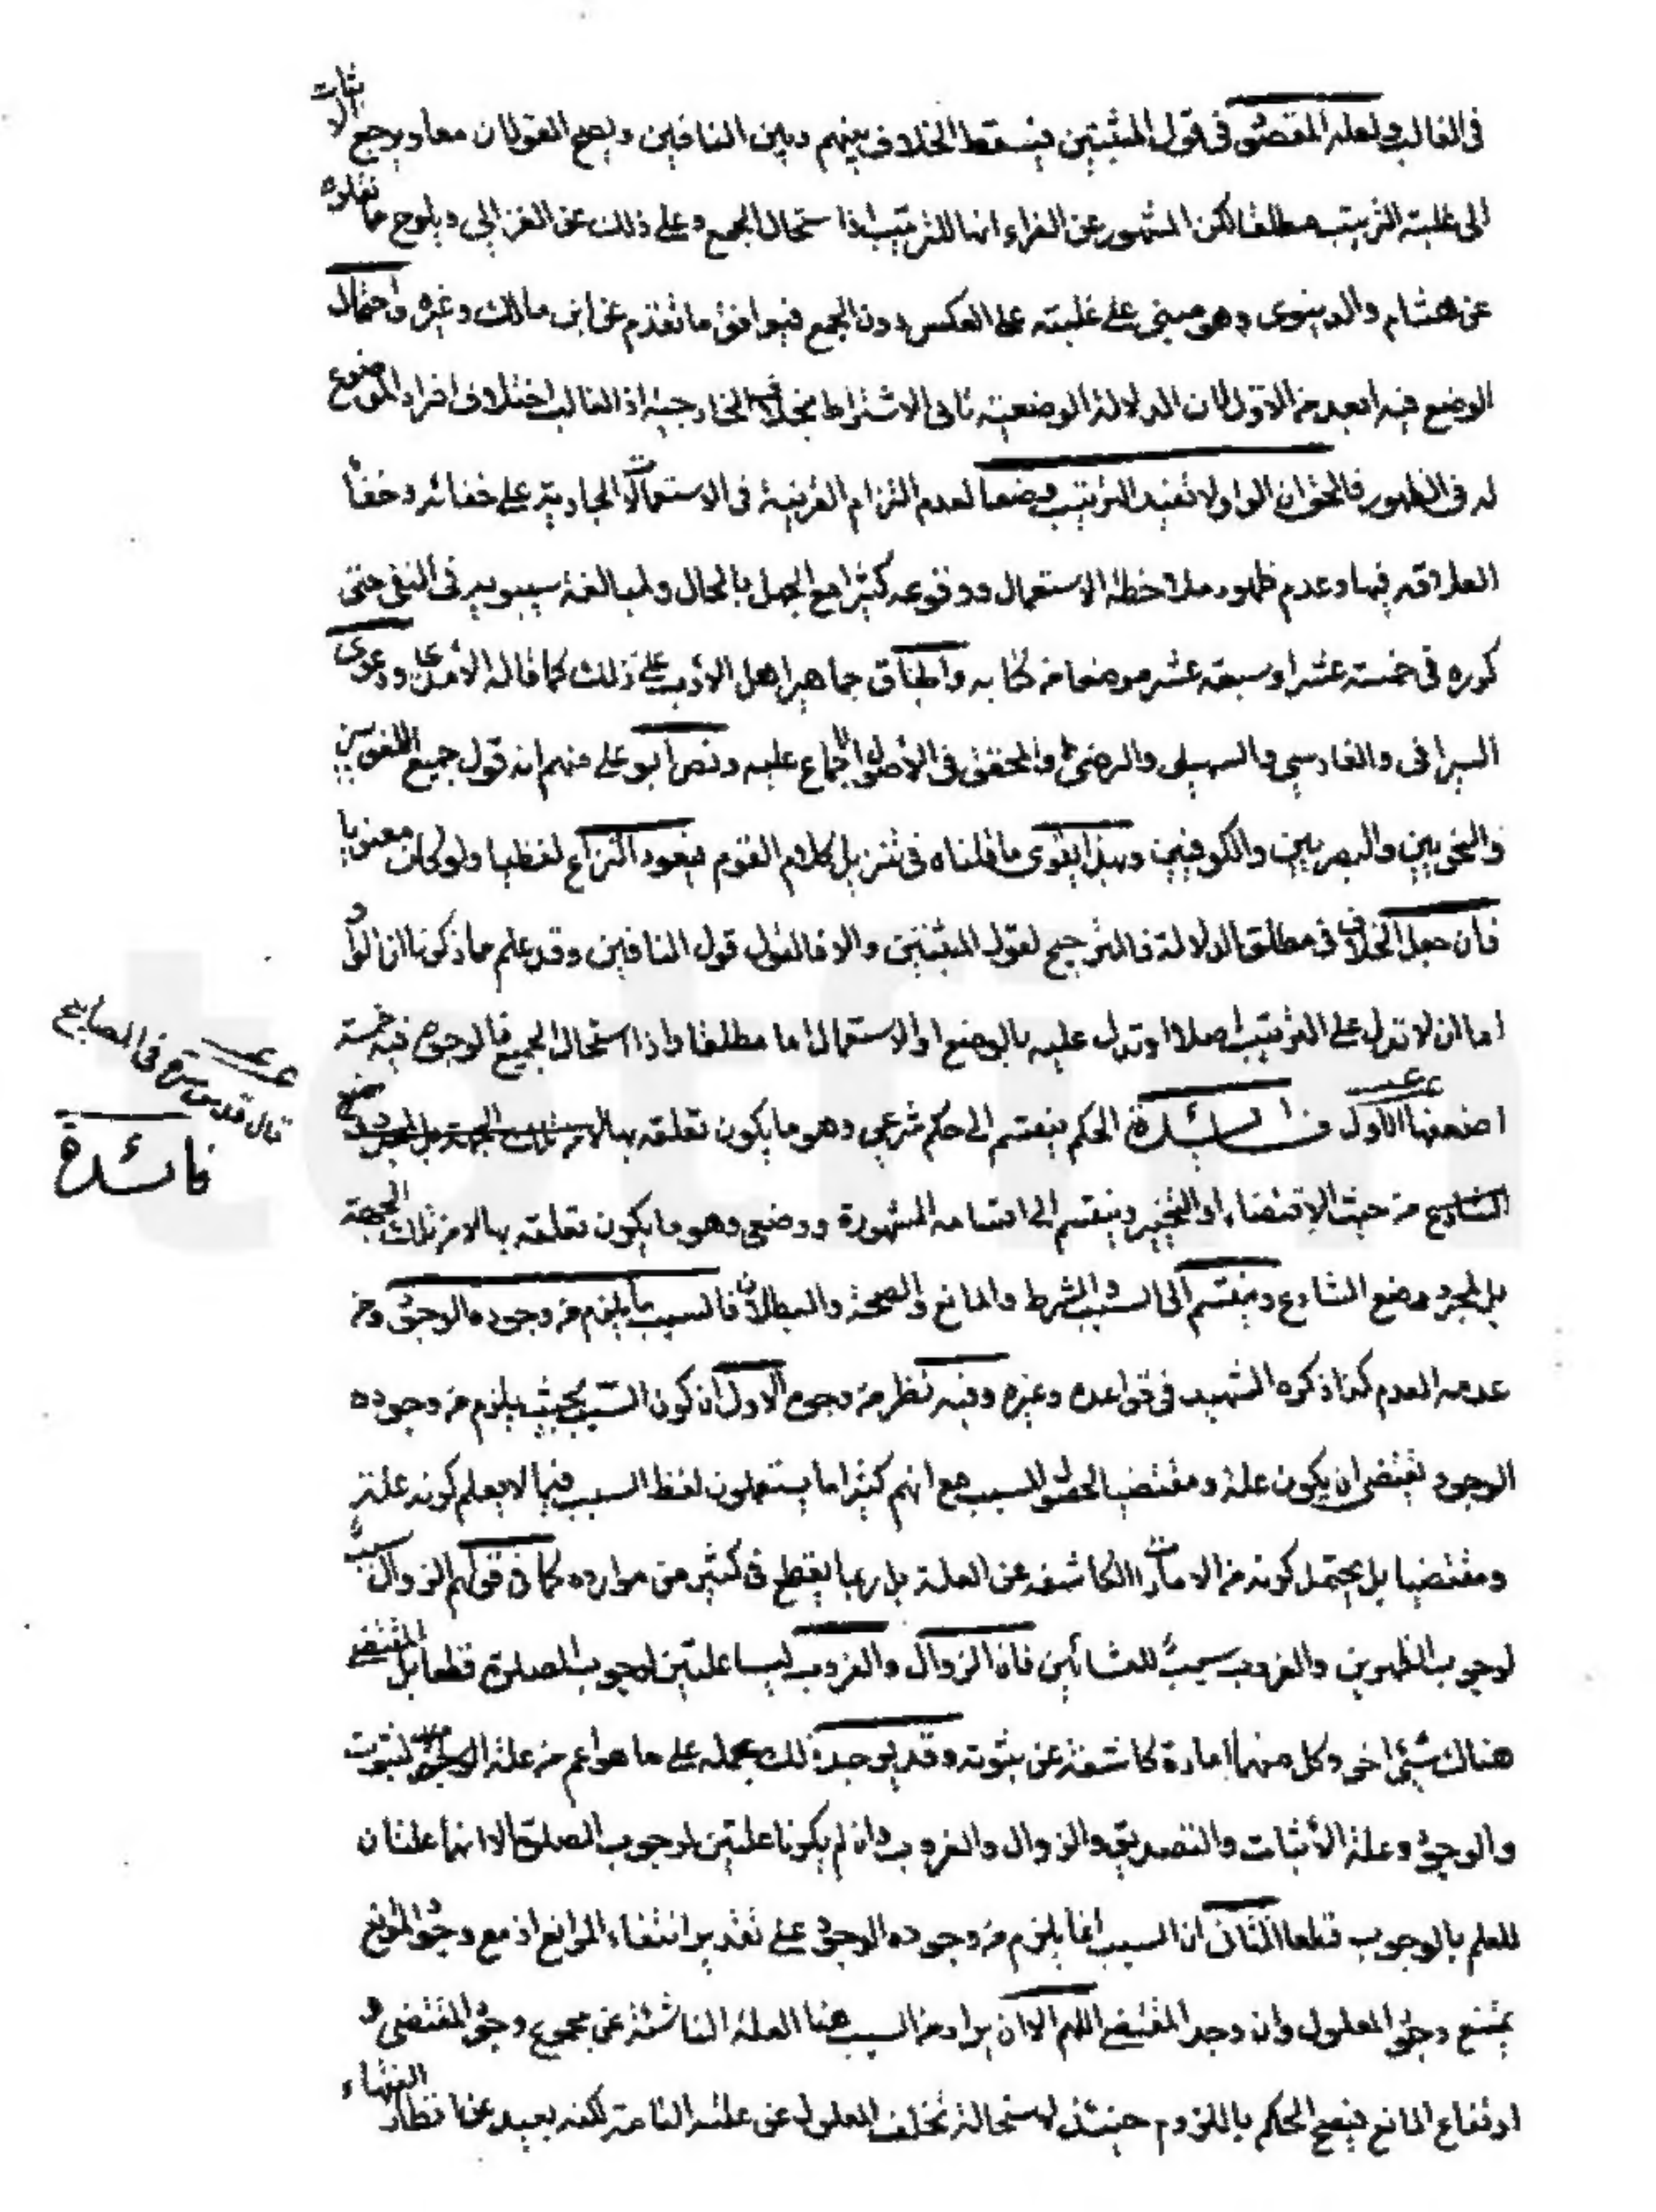 في الغالب ولعله المقصود في قول المثبتين فيسقط الخلاف بينهم وبين النافين ويصح القولان معا ويرجع الاثبات
الى غلبة الترتيب مطلقا لكن المشهور عن الفراء انها للترتيب اذا استحال الجمع وعلى ذلك عن الغزالي ويلوح ما نقلوه
عن هشام والدينوري وهو مبني على غلبته على العكس دون الجمع فيوافق ما تقدم عن ابن مالك وغيره واحتمال
الوضع فيه ابعد من الاول لان الدلالة الوضعية تابى الاشتراط بخلاف الخارجية اذ الغالب اختلاف افراد الموضوع
له في الظهور فالحق ان الواو لا تفيد الترتيب وضعا لعدم التزام القرينة في الاستعمالات الجارية على خفائه وخفاء
العلاقة فيها وعدم ظهور ملاحظة الاستعمال ووقوعه كثيرا مع الجهل بالحال ولمبالغة سيبويه في النفي حتى
كرره في خمسة عشر او سبعة عشر موضعا من كتابه واطباق جماهير اهل الأدب على ذلك كما قاله الأمدي ودعوى
السيرافي والفارسي والسهيلي والرضي والمحقق في الأصول الاجماع عليه ونص أبو علي منهم انه قول جميع اللغويين
والنحويين والبصريين والكوفيين وبهذا يقوى ما قلناه في تنزيل كلام القوم فيعود النزاع لفظيا ولو كان معنويا
فان جعل الخلاف في مطلق الدلالة فالترجيح لقول المثبتين والا فالقول قول النافين وقد علم مما ذكرنا ان الواو
اما ان لا تدل على الترتيب اصلا او تدل عليه بالوضع او الاستعمال اما مطلقا واذا استحال الجمع فالوجوه فيه خمسة
اضعفها الأول فائدة الحكم ينقسم الى حكم شرعي وهو ما يكون تعلقه بها لا من تلك الجهة بل لمجرد وضع
الشارع من حيث الاقتضاء او التخيير وينقسم الى اقسامه المشهورة ووضعي وهو ما يكون تعلقه بها لا من تلك الجهة
بل لمجرد وضع الشارع وينقسم الى السبب والشرط والمانع والصحة والبطلان فالسبب ما يلزم من وجوده الوجود ومن
عدمه العدم كذا ذكره الشهيد في قواعده وغيره وفيه نظر من وجوه الاول ان كون السبب بحيث يلزم من وجوده
الوجود يقتضي ان يكون علة ومقتضيا لحصول المسبب مع انهم كثيرا ما يستعملون لفظ السبب فيما لا يعلم كونه علة
ومقتضيا بل يحتمل كونه من الامارات الكاشفة عن العلة بل ربما يقطع في كثير من موارده كما في قولهم الزوال سبب
لوجوب الظهرين والغروب سبب للعشائين فان الزوال والغروب ليسا علتين لوجوب الصلوة قطعا بل المقتضي
هناك شيء اخر وكل منهما امارة كاشفة عن ثبوته وقد يوجد ذلك بحمله على ما هو اعم من علة الثبوت
والوجود وعلة الأثبات والتصديق والزوال والغروب وان لم يكونا علتين لوجوب الصلوة الا انهما علتان
للعلم بالوجوب قطعا الثاني ان السبب انما يلزم من وجوده الوجود على تقدير انتفاء الموانع اذ مع وجود الموانع
يمتنع وجود المعلول وان وجد المقتضي اللهم الا ان يراد من السبب هنا العلة الناشئة عن مجموع وجود المقتضي و
ارتفاع المانع فيصح الحكم باللزوم حينئذ لاستحالة تخلف المعلول عن علته التامة لكنه بعيد عن انظار الفقهاء
قال قدس سره في المصابيح
فائدة